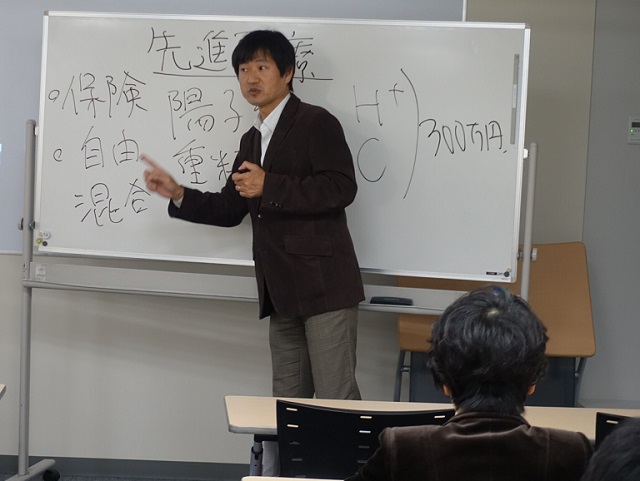 先進 療
保険
自由
混合
陽子 H+
重粒 C
300万円